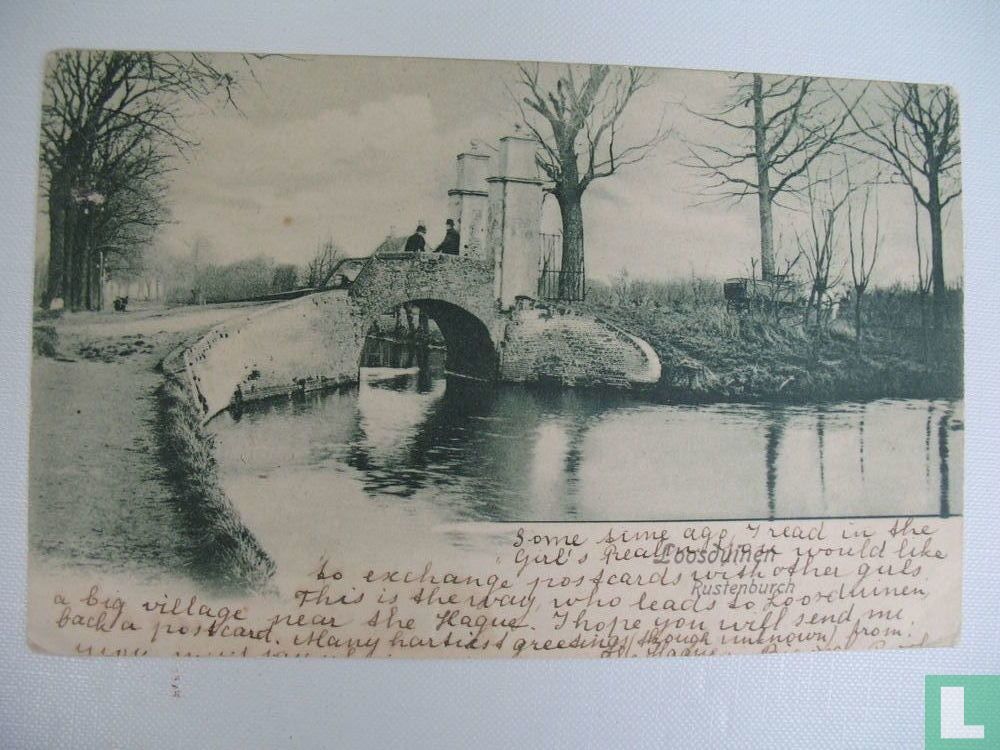 Some time ago I read in the
Girl's Realm you would like
Loosduinen
to exchange postcards with other girls
Rustenburch
This is the way, who leads to Loosduinen,
a big village near the Hague. I hope you will send me
back a postcard. Many hartiest greetings (though unknown) from.
L